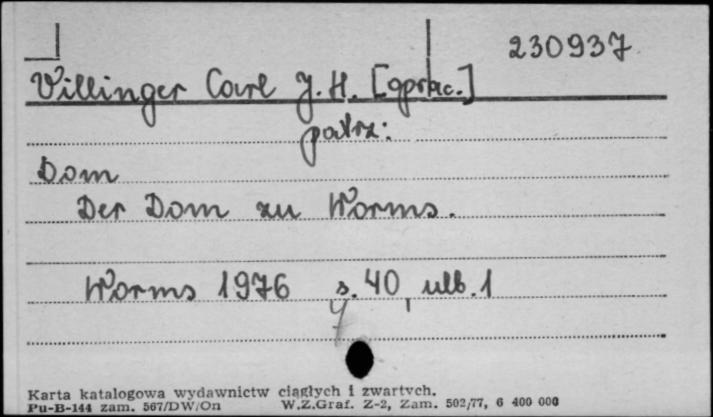 230937
Villinger Carl J. H. [oprac.]
patrz:
Dom
Der Dom zu Worms.
Worms 1976 s. 40, ulb. 1
Karta katalogowa wydawnictw ciągłych i zwartych.
Pu-B-144 zam. 567/DW/On W.Z.Graf. Z-2, Zam. 502/77, 6 400 000